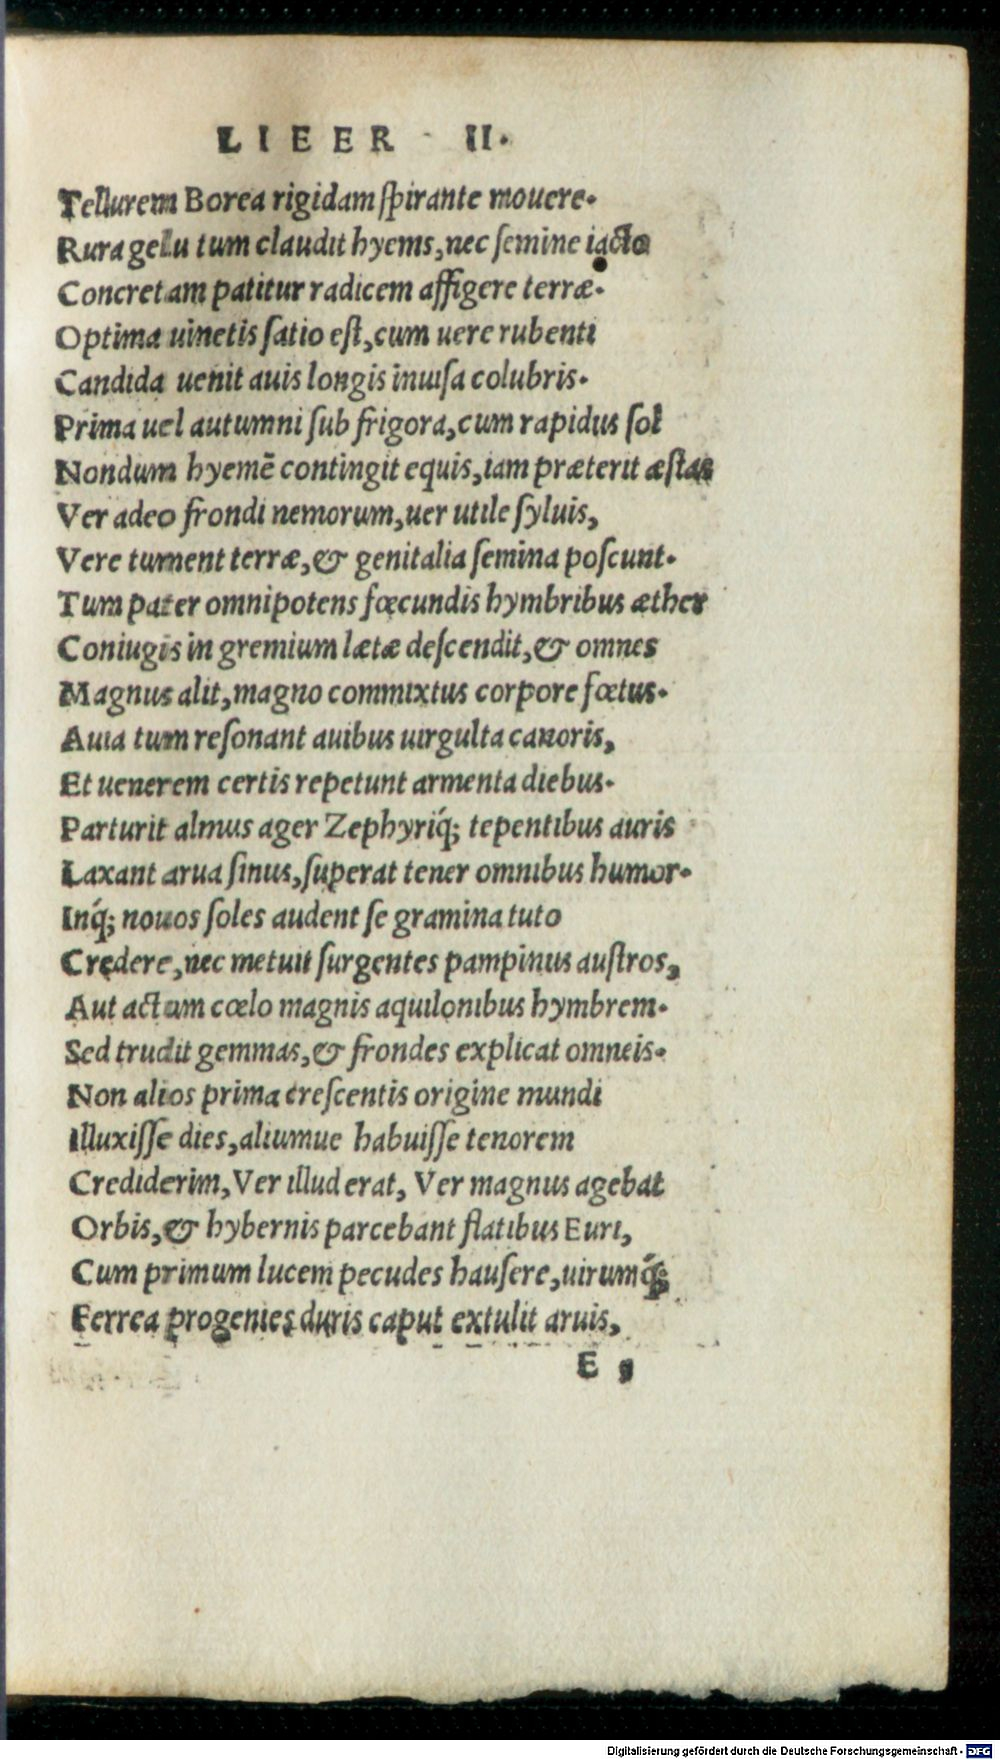 LIEER II.
Tellurem Borea rigidam ſpirante mouere.
Rura gelu tum claudit hyems, nec ſemine iacto
Concretam patitur radicem affigere terræ.
Optima uinetis ſatio eſt, cum uere rubenti
Candida uenit auis longis inuiſa colubris.
Prima uel autumni ſub frigora, cum rapidus ſol
Nondum hyemē contingit equis, iam præterit æſtas
Ver adeo frondi nemorum, uer utile ſyluis,
Vere tument terræ, & genitalia ſemina poſcunt.
Tum pater omnipotens fœcundis hymbribus æther
Coniugis in gremium lætæ deſcendit, & omnes
Magnus alit, magno commixtus corpore fœtus.
Auia tum reſonant auibus uirgulta canoris,
Et uenerem certis repetunt armenta diebus.
Parturit almus ager Zephyriq́; tepentibus auris
Laxant arua ſinus, ſuperat tener omnibus humor.
Inq́; nouos ſoles audent ſe gramina tuto
Credere, nec metuit ſurgentes pampinus auſtros,
Aut actum cœlo magnis aquilonibus hymbrem.
Sed trudit gemmas, & frondes explicat omneis.
Non alios prima creſcentis origine mundi
Illuxiſſe dies, aliumue habuiſſe tenorem
Crediderim, Ver illud erat, Ver magnus agebat
Orbis, & hybernis parcebant flatibus Euri,
Cum primum lucem pecudes hauſere, uirumq́;
Ferrea progenies duris caput extulit aruis,
E
Digitalisierung gefördert durch die Deutsche Forschungsgemeinschaft - DFG